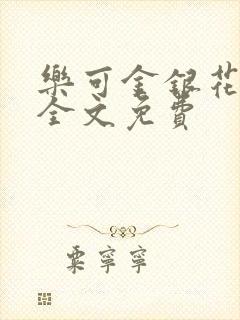 樂可金銀花
全文免費
粟寧寧